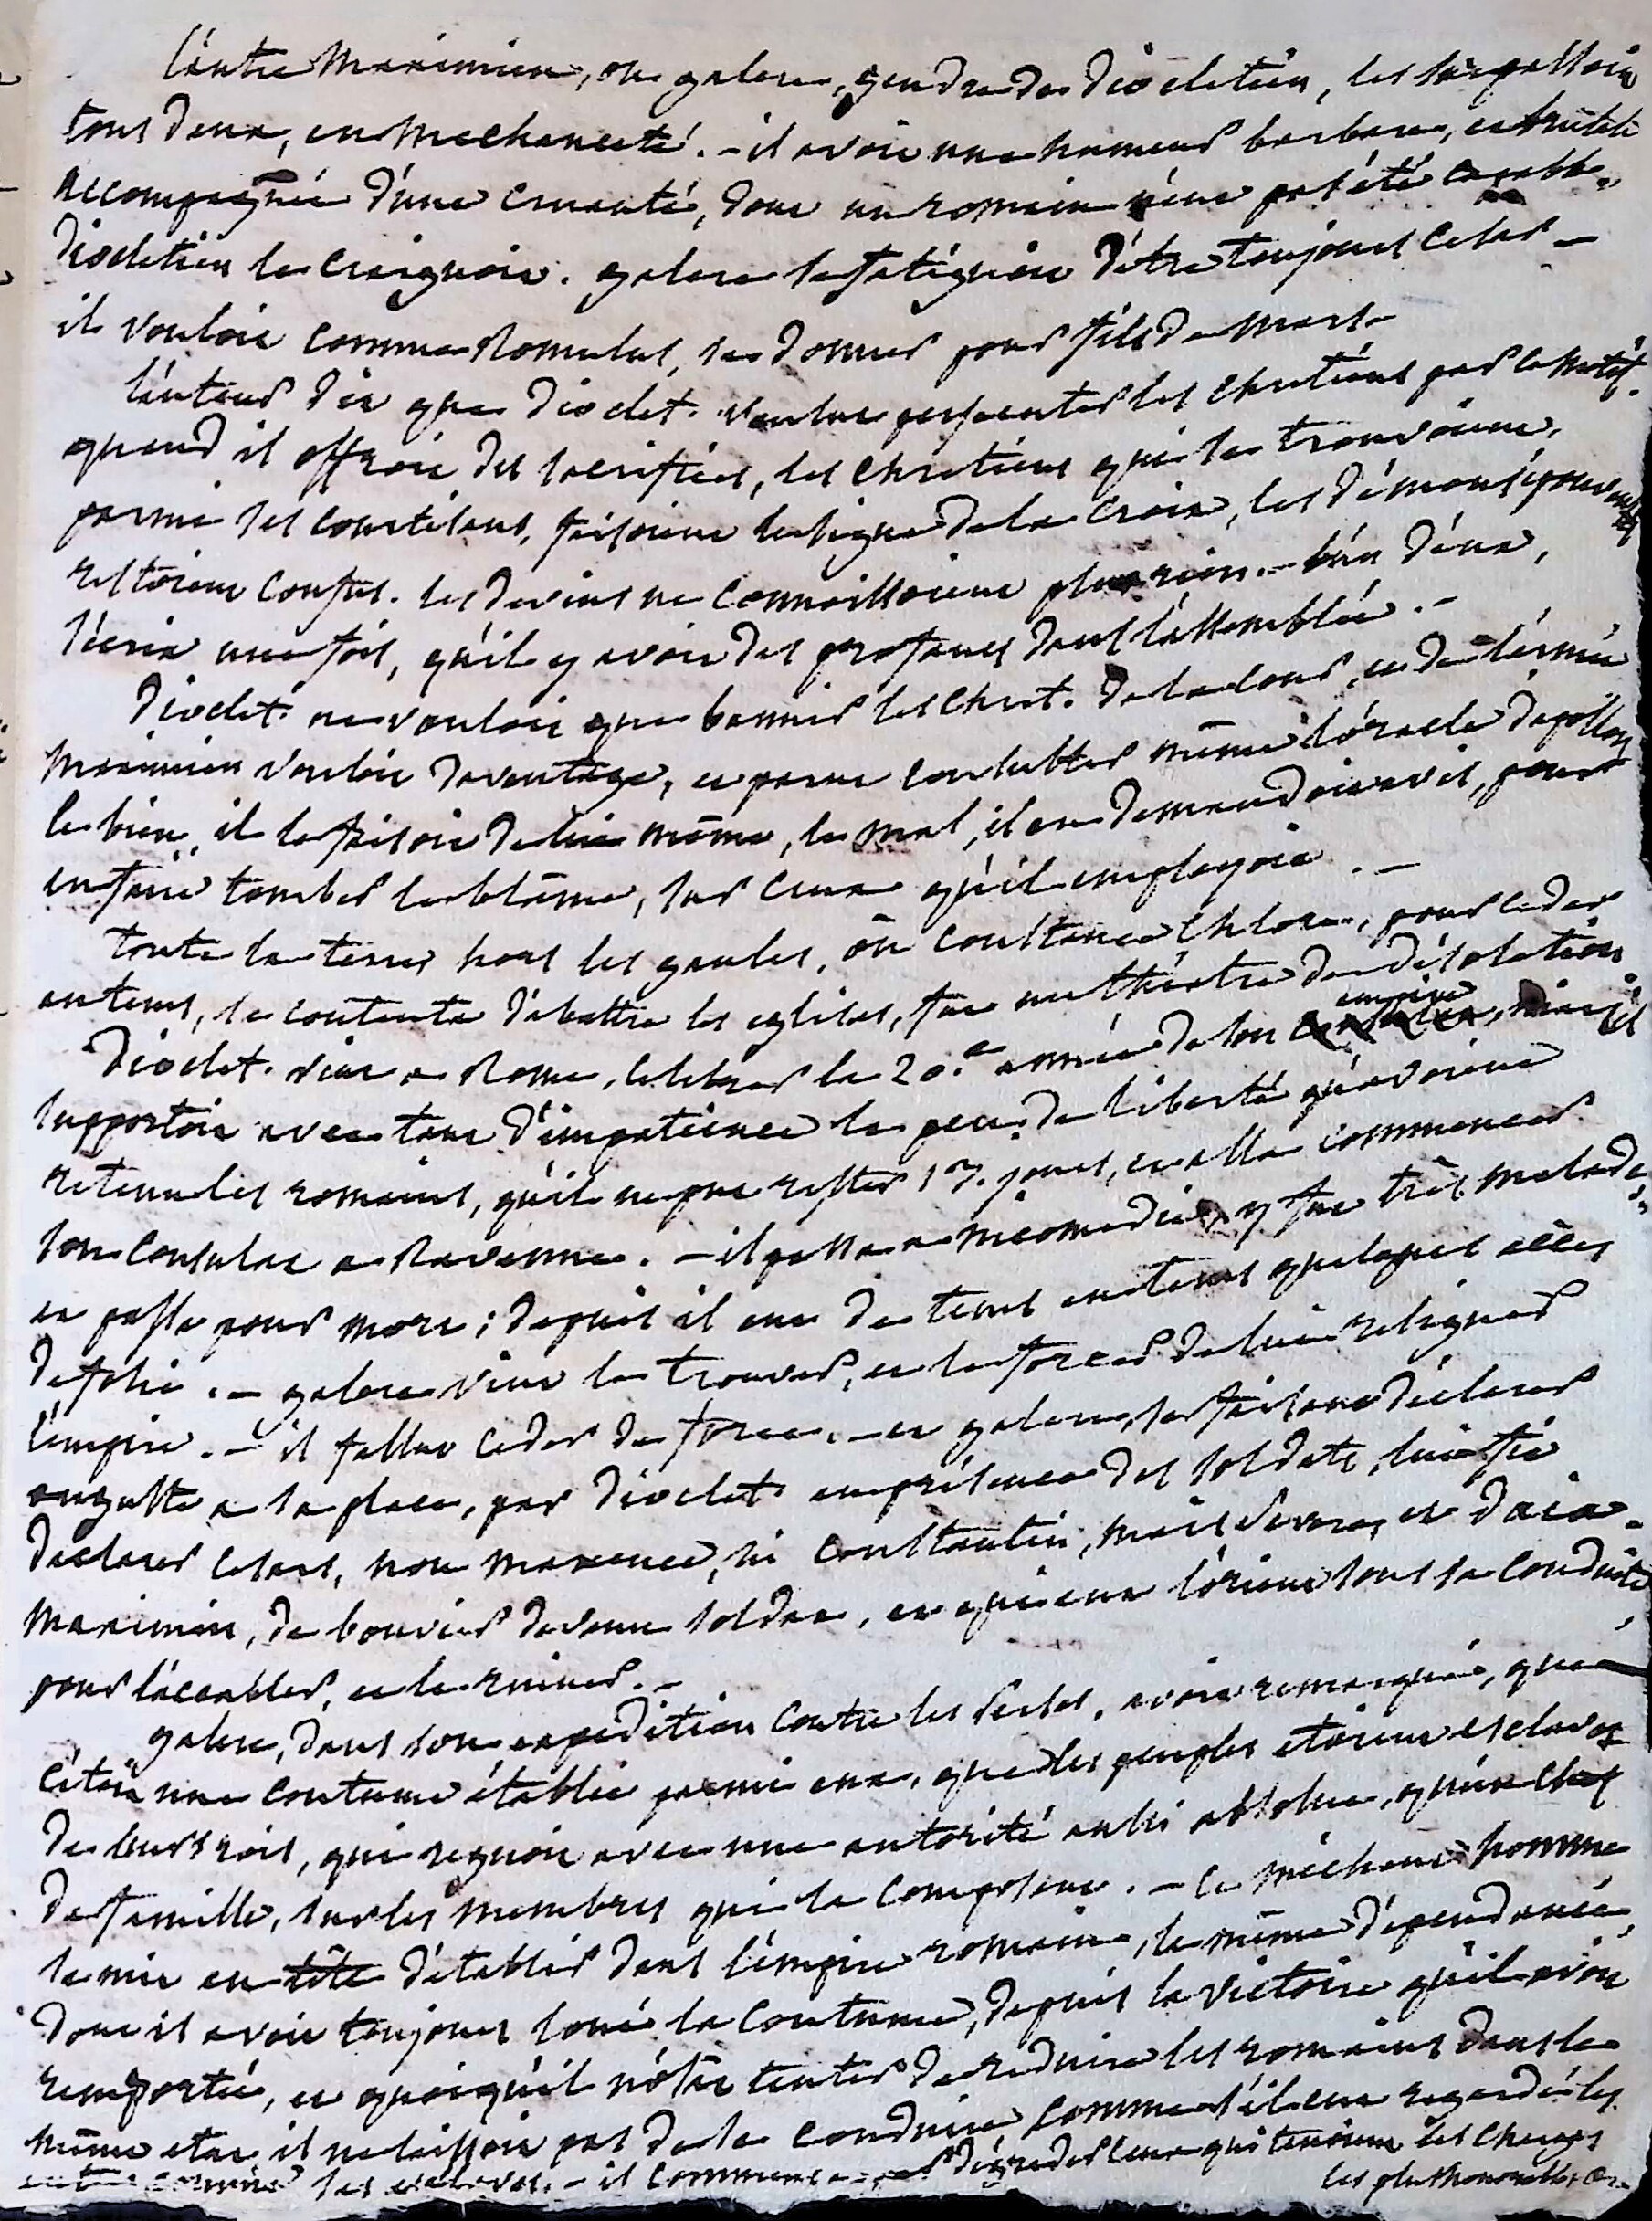 l'autre Maximien, ou galere, gendre de Dioclétien, les surpassoit
tous deux, en mechanceté. - il avoit une humeur barbare, et brutale
accompagnée d'une cruauté, dont un romain n'eut pas été capable.
Dioclétien le craignoit. galere se fatiguoit d'être toujours Cesar -
il vouloit comme Romulus, se donner pour fils de Mars -
l'auteur dit que Dioclet. voulut persecuter les chretiens par ce motif.
quand il offroit des sacrifices, les chretiens qui se trouvoient,
parmi ses courtisans, faisoient le signe de la croix, les démons épouvantés
restoient confus. les devins ne connoissoient plus rien. - l'un d'eux,
s'écria une fois, qu'il y avoit des profanes dans l'assemblée. -
Dioclet. ne vouloit que bannir les chret. de la cour, et de l'armée
Maximien vouloit davantage, et parut consulter même l'oracle d'apollon
le bien, il le faisoit de lui même, le mal, il en demandoit avis, pour
en faire tomber le blâme, sur ceux qu'il employoit. -
toute la terre hors les gaules, où Constance Chlore, pour ceder
au tems, se contenta d'abattre les eglises, fut un théatre de désolation
Dioclet. vint a Rome, celebrer la 20.e année de son empire, mais il
supportoit avec tant d'impatience le peu de liberté qu'avoient
retenu les romains, qu'il ne put rester 13. jours, et alla commencer
son consulat a Ravenne. - il passa a nicomedie, y fut très malade,
et passa pour mort; depuis il eut de tems en tems quelques accès
de folie. - galere vint le trouver, et le forcer de lui resigner
l'empire. - il fallut ceder de force. - et galere, se faisant déclarer
auguste a sa place, par Dioclet. en présence des soldats, lui fit
declarer Cesars, non Maxence, ni Constantin, mais Severe, et Daia.
Maximin, de bouvier devenu soldat, et qui eut l'orient sous sa conduite,
pour l'accabler, et le ruiner. -
galere, dans son expedition contre les Perses, avoit remarqué, que
c'étoit une coutume établie parmi eux, que les peuples etoient esclaves
de leurs rois, qui regnoit avec une autorité aussi absolue, qu'un chef
de famille, sur les membres qui la composent. - ce méchant homme
se mit en tête d'établir dans l'empire romain, la même dépendance,
dont il avoit toujours loué la coutume, depuis la victoire qu'il avoit
remportée, et quoiqu'il n'ôsat tenter de reduire les romains dans le
même etat, il ne laissoit pas de se conduire, comme s'il eut regardé les
comme ses esclaves. - il commença par dégrader ceux qui tenoient les charges
les plus honorables